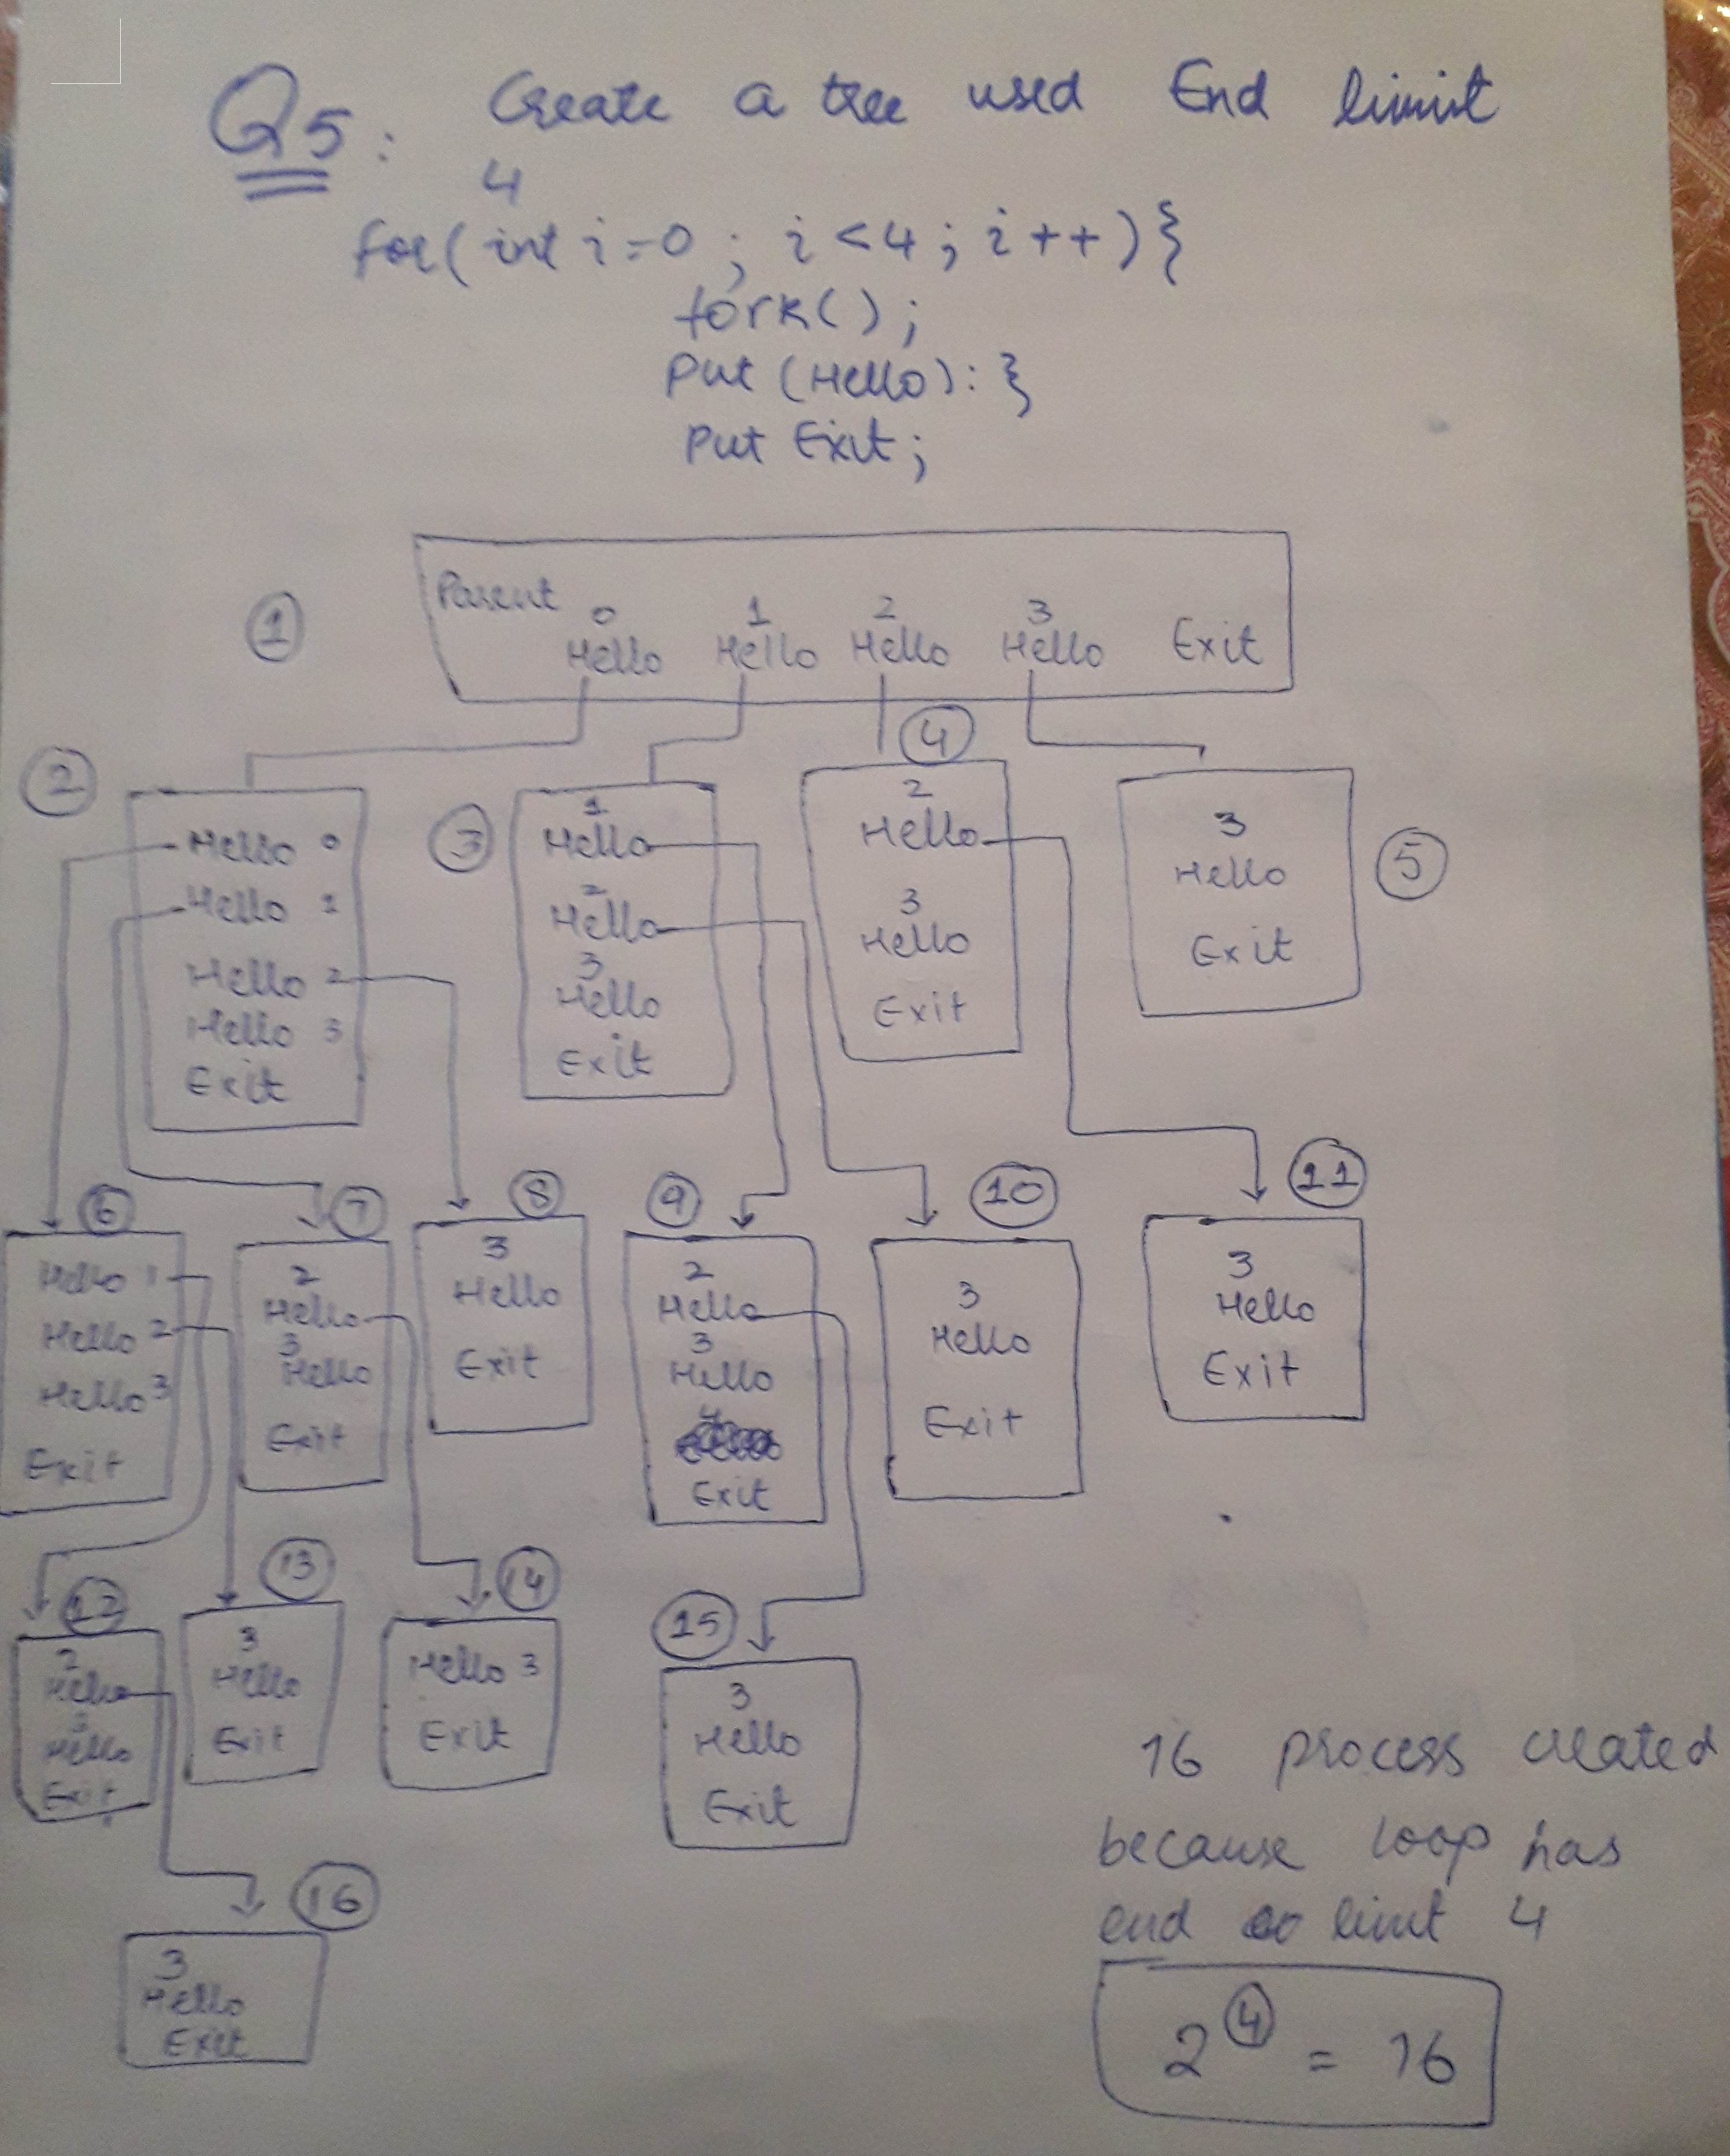 Q5: Create a tree used End limit
4
for( int i=0 ; i <4 ; i ++ ) }
fork() ;
Put (Hello): }
Put Exit ;
Parent
1
0 1 2 3
Hello Hello Hello Hello Exit
2
Hello 0
Hello 1
Hello 2
Hello 3
Exit
3
1
Hello
2
Hello
3
Hello
Exit
4
2
Hello
3
Hello
Exit
3
Hello
Exit
5
6
Hello 1
Hello 2
Hello 3
Exit
7
2
Hello
3
Hello
Exit
8
3
Hello
Exit
9
2
Hello
3
Hello
Exit
10
3
Hello
Exit
11
3
Hello
Exit
12
2
Hello
3
Hello
Exit
13
3
Hello
Exit
14
Hello 3
Exit
15
3
Hello
Exit
16
3
Hello
Exit
16 process created
because loop has
end limt 4
2^4 = 16